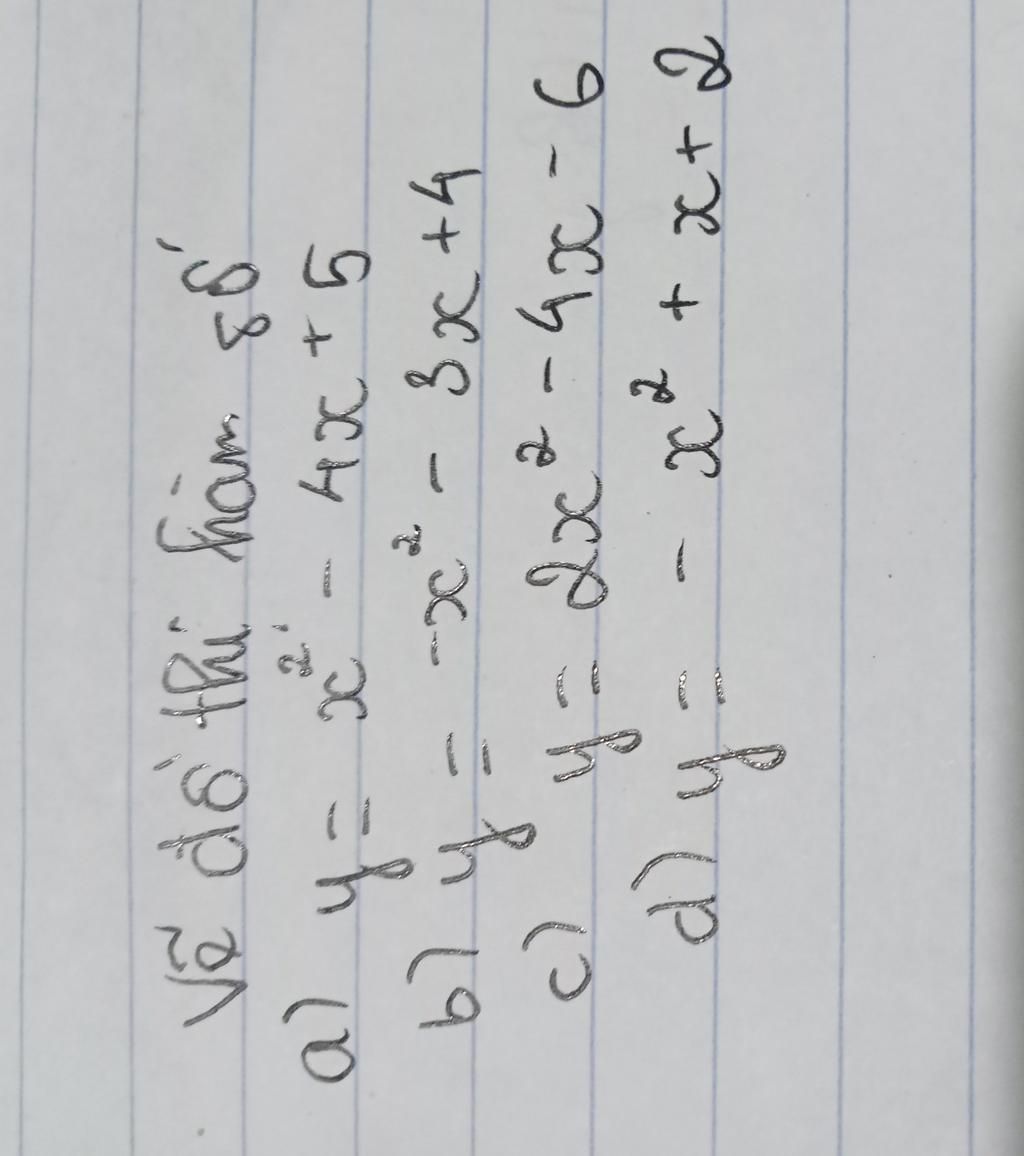 Vẽ đồ thị hàm số
a) y = x² - 4x + 5
b) y = -x² - 3x + 4
c) y = 2x² - 4x - 6
d) y = - x² + x + 2